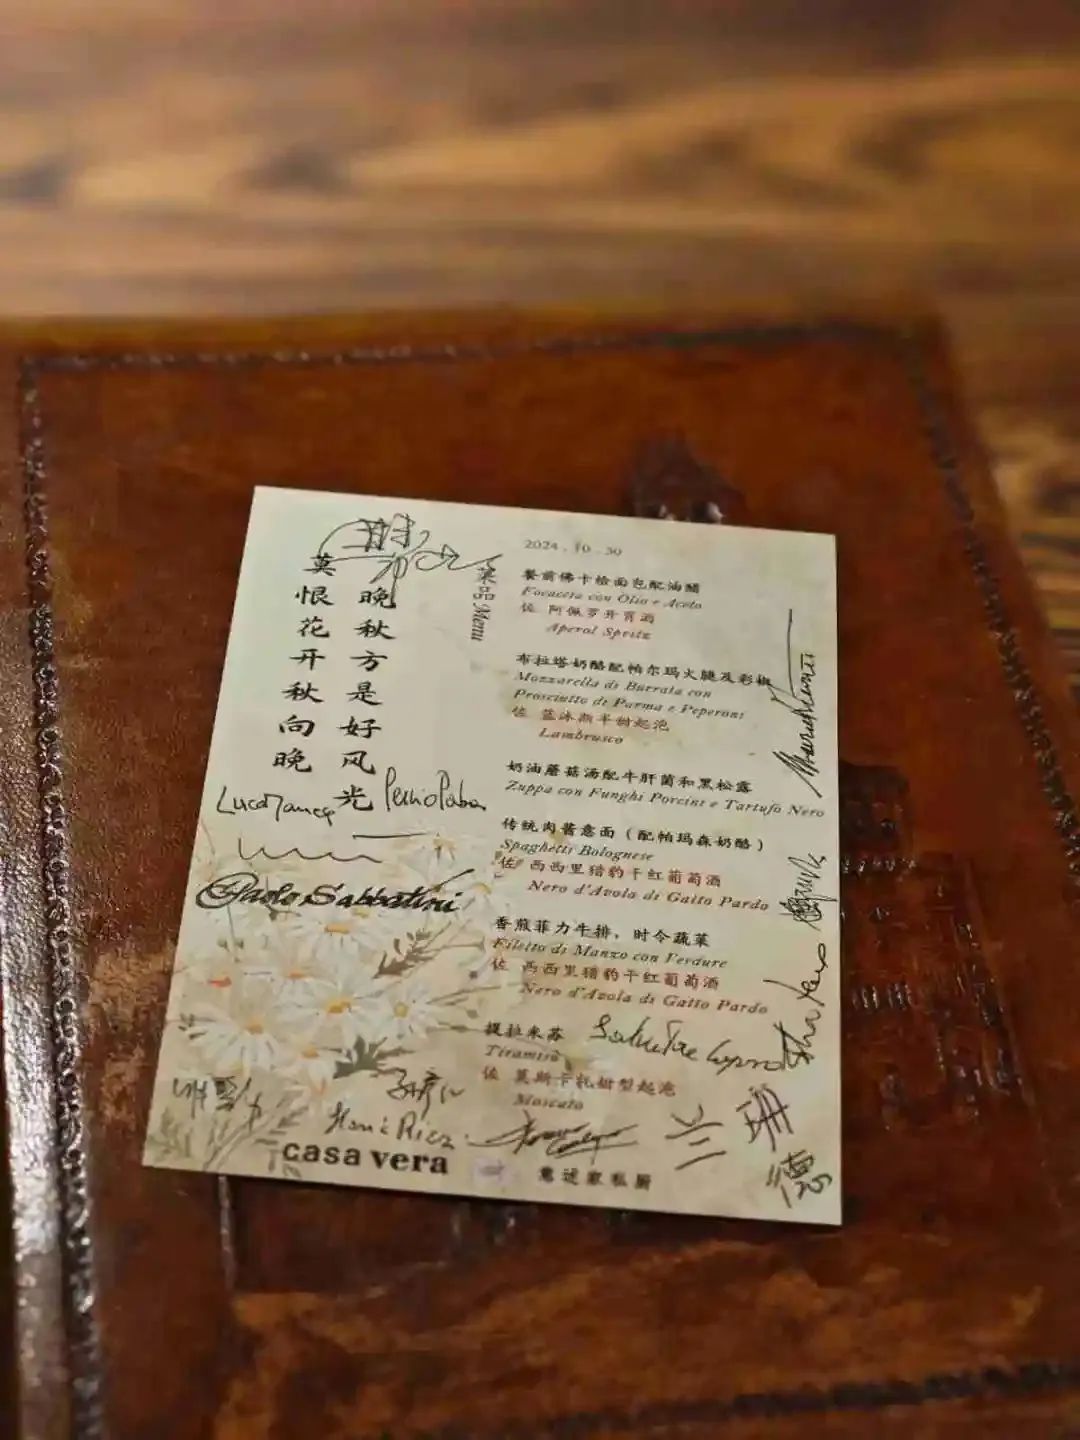 晚秋方是好风光
莫恨花开秋向晚
菜品 Menu
2024 . 10 . 30
餐前佛卡恰面包配油醋
Focaccia con Olio e Aceto
佐 阿佩罗开胃酒
Aperol Spritz
布拉塔奶酪配帕尔玛火腿及彩椒
Mozzarella di Burrata con
Prosciutto di Parma e Peperoni
佐 蓝沐斯半甜起泡
Lambrusco
奶油蘑菇汤配牛肝菌和黑松露
Zuppa con Funghi Porcini e Tartufo Nero
传统肉酱意面（配帕玛森奶酪）
Spaghetti Bolognese
佐 西西里猎豹干红葡萄酒
Nero d'Avola di Gatto Pardo
香煎菲力牛排，时令蔬菜
Filetto di Manzo con Verdure
佐 西西里猎豹干红葡萄酒
Nero d'Avola di Gatto Pardo
提拉米苏
Tiramisù
佐 莫斯卡托甜型起泡
Moscato
Paolo Sabbatini
兰珊德
casa vera
意述家私厨